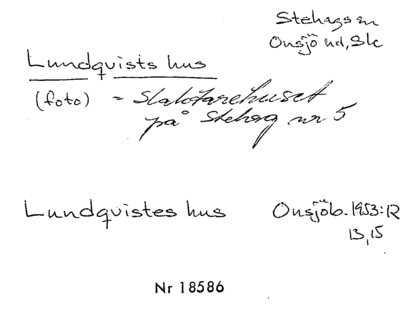 Stehags sn
Onsjö hd, Sk
Lundquists hus
(foto) = Slaktarehuset
på Stehag nr 5
Lundquistes hus
Onsjöb. 1953: 12
13, 15
Nr 18586